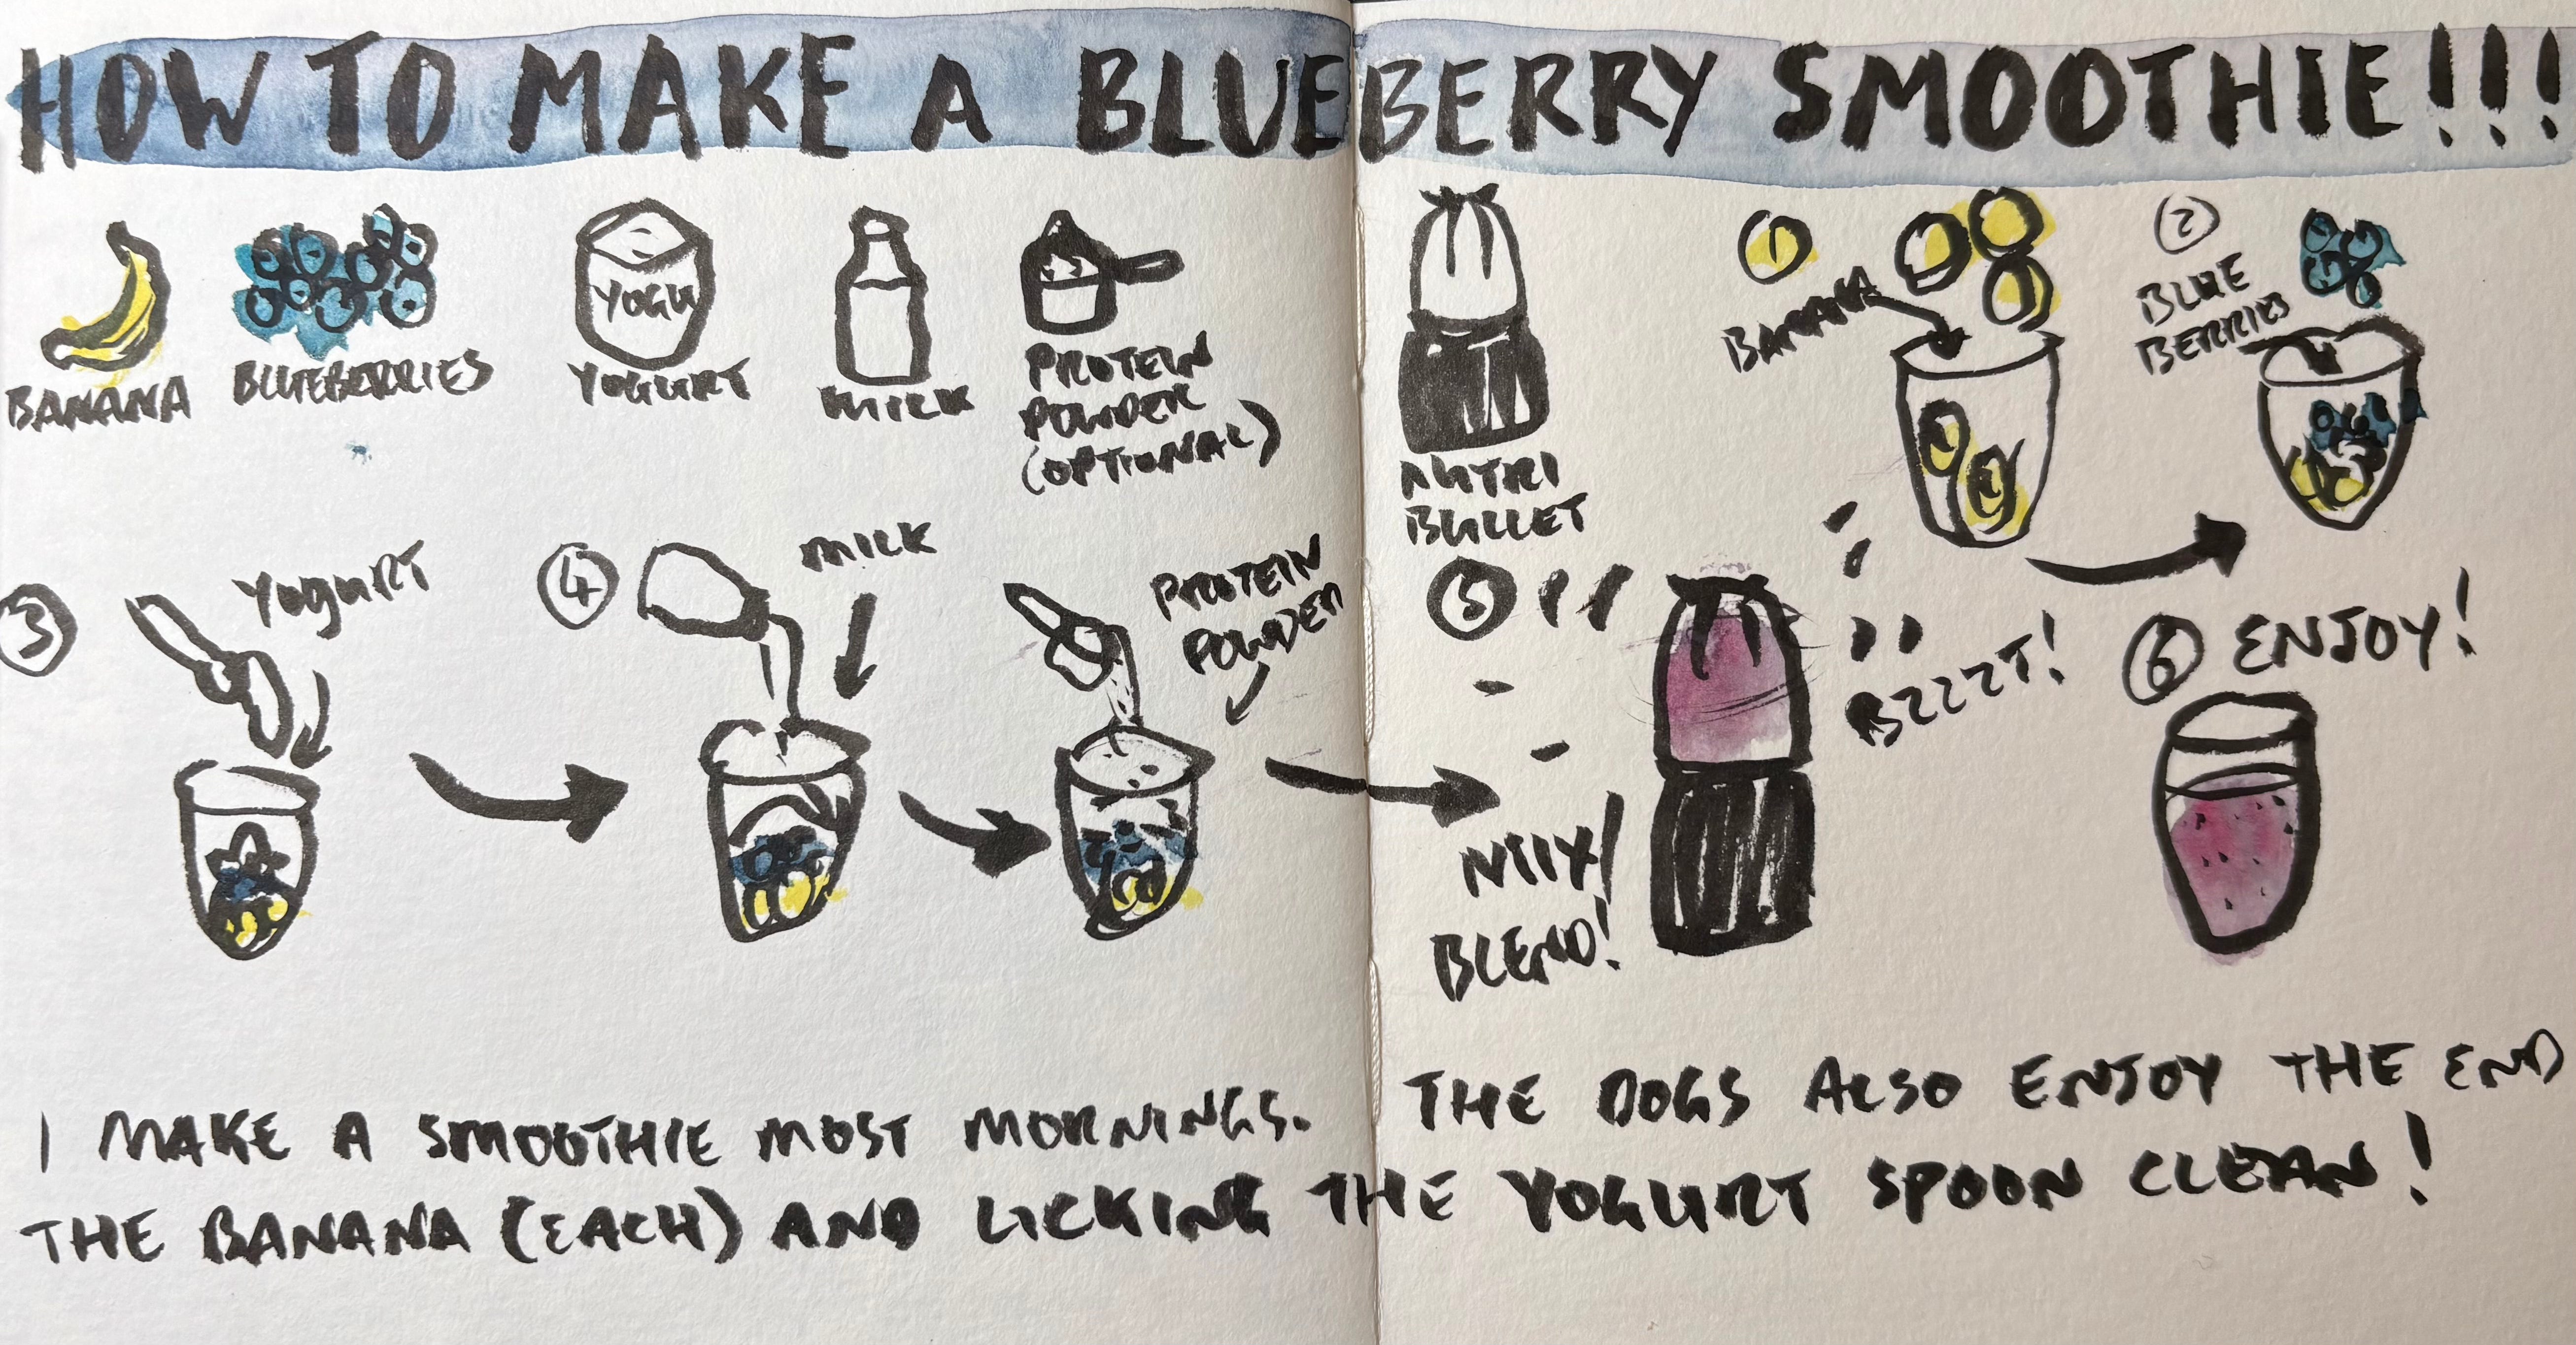 HOW TO MAKE A BLUEBERRY SMOOTHIE!!!
BANANA
BLUEBERRIES
YOGU
YOGURT
MILK
PROTEIN
POWDER
(OPTIONAL)
NUTRI
BULLET
1
BANANA
2
BLUE
BERRIES
3
YOgURT
4
MILK
PROTEIN
POWDER
5
BZZZT!
MIX/
BLEND!
6 ENJOY!
I MAKE A SMOOTHIE MOST MORNINGS. THE DOGS ALSO ENJOY THE END
THE BANANA (EACH) AND LICKING THE YOGURT SPOON CLEAN!